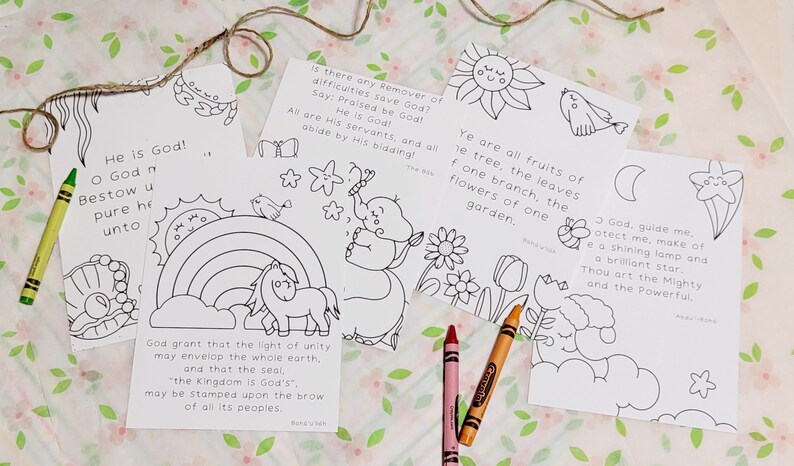 He is God!
O God m
Bestow u
pure he
unto
Is there any Remover of
difficulties save God?
Say: Praised be God!
He is God!
All are His servants, and all
abide by His bidding!
The Báb
Ye are all fruits of
ne tree, the leaves
f one branch, the
flowers of one
garden.
Bahá'u'lláh
O God, guide me,
otect me, make of
e a shining lamp and
a brilliant star.
Thou art the Mighty
and the Powerful.
Abdu'l-Bahá
God grant that the light of unity
may envelop the whole earth,
and that the seal,
"the Kingdom is God's",
may be stamped upon the brow
of all its peoples.
Bahá'u'lláh
Crayola